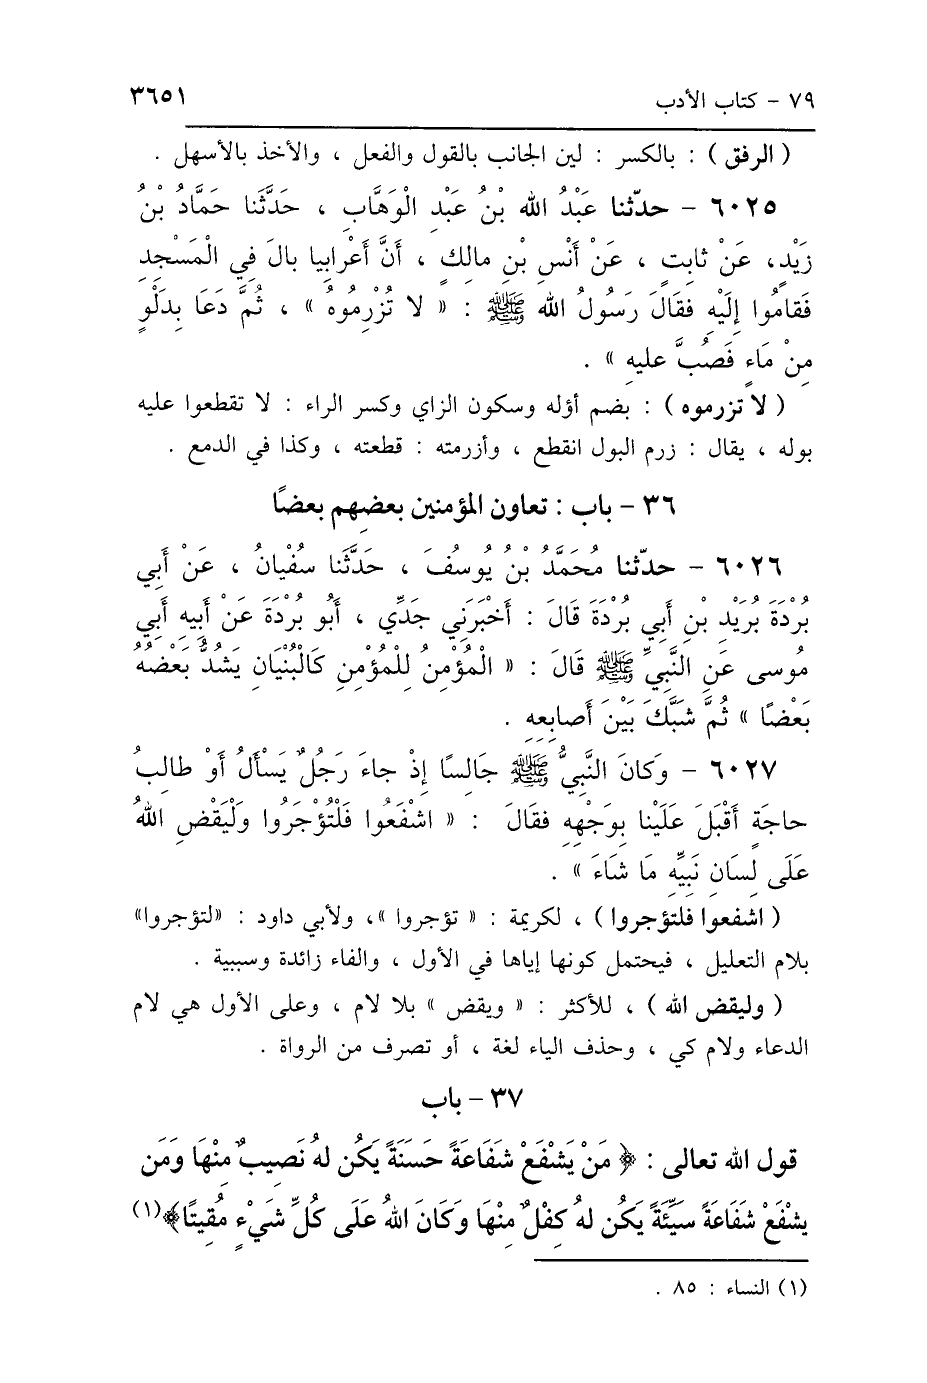 ٧٩ - كتاب الأدب ٣٦٥١
( الرفق ) : بالكسر : لين الجانب بالقول والفعل ، والأخذ بالأسهل .
٦٠٢٥ - حدّثنا عَبْدُ الله بْنُ عَبْدِ الْوَهَّابِ ، حَدَّثَنا حَمَّادُ بْنُ
زَيْدٍ، عَنْ ثابِتٍ ، عَنْ أَنَسِ بْنِ مالِكٍ ، أَنَّ أَعْرابِيا بالَ فِي الْمَسْجِدِ
فَقامُوا إِلَيْهِ فقَالَ رَسُولُ الله ﷺ : « لا تُزْرِمُوهُ » ، ثُمَّ دَعَا بِدَلْوٍ
مِنْ مَاءٍ فَصُبَّ عليهِ » .
( لا تزرموه ) : بضم أوّله وسكون الزاي وكسر الراء : لا تقطعوا عليه
بوله ، يقال : زرم البول انقطع ، وأزرمته : قطعته ، وكذا في الدمع .
٣٦ - باب : تعاون المؤمنين بعضِهم بعضًا
٦٠٢٦ - حدّثنا مُحَمَّدُ بْنُ يُوسُفَ ، حَدَّثَنا سُفْيانُ ، عَنْ أَبِي
بُرْدَةَ بُرَيْدِ بْنِ أَبِي بُرْدَةَ قَالَ : أَخْبَرَنِي جَدِّي ، أَبُو بُرْدَةَ عَنْ أَبِيهِ أَبِي
مُوسى عَنِ النَّبِيِّ ﷺ قَالَ : « الْمُؤْمِنُ لِلْمُؤْمِنِ كَالْبُنْيَانِ يَشُدُّ بَعْضُهُ
بَعْضًا » ثُمَّ شَبَّكَ بَيْنَ أَصابِعِهِ .
٦٠٢٧ - وَكانَ النَّبِيُّ ﷺ جَالِسًا إِذْ جاءَ رَجُلٌ يَسْأَلُ أَوْ طالِبُ
حاجَةٍ أَقْبَلَ عَلَيْنا بِوَجْهِهِ فقَالَ : « اشْفَعُوا فَلْتُؤْجَرُوا وَلْيَقْضِ اللهُ
عَلَى لِسَانِ نَبِيِّهِ مَا شاءَ » .
( اشفعوا فلتؤجروا ) ، لكريمة : « تؤجروا »، ولأبي داود : «لتؤجروا»
بلام التعليل ، فيحتمل كونها إياها في الأول ، والفاء زائدة وسببية .
( وليقض الله ) ، للأكثر : « ويقض » بلا لام ، وعلى الأول هي لام
الدعاء ولام كي ، وحذف الياء لغة ، أو تصرف من الرواة .
٣٧ - باب
قول الله تعالى : ﴿ مَنْ يَشْفَعْ شَفَاعَةً حَسَنَةً يَكُن لهُ نَصِيبٌ مِنْهَا وَمَن
يشْفَعْ شَفَاعَةً سَيِّئَةً يَكُن لهُ كِفْلٌ مِنْهَا وَكَانَ اللهُ عَلَى كُلِّ شَيْءٍ مُقِيتًا﴾(١)
(١) النساء : ٨٥ .